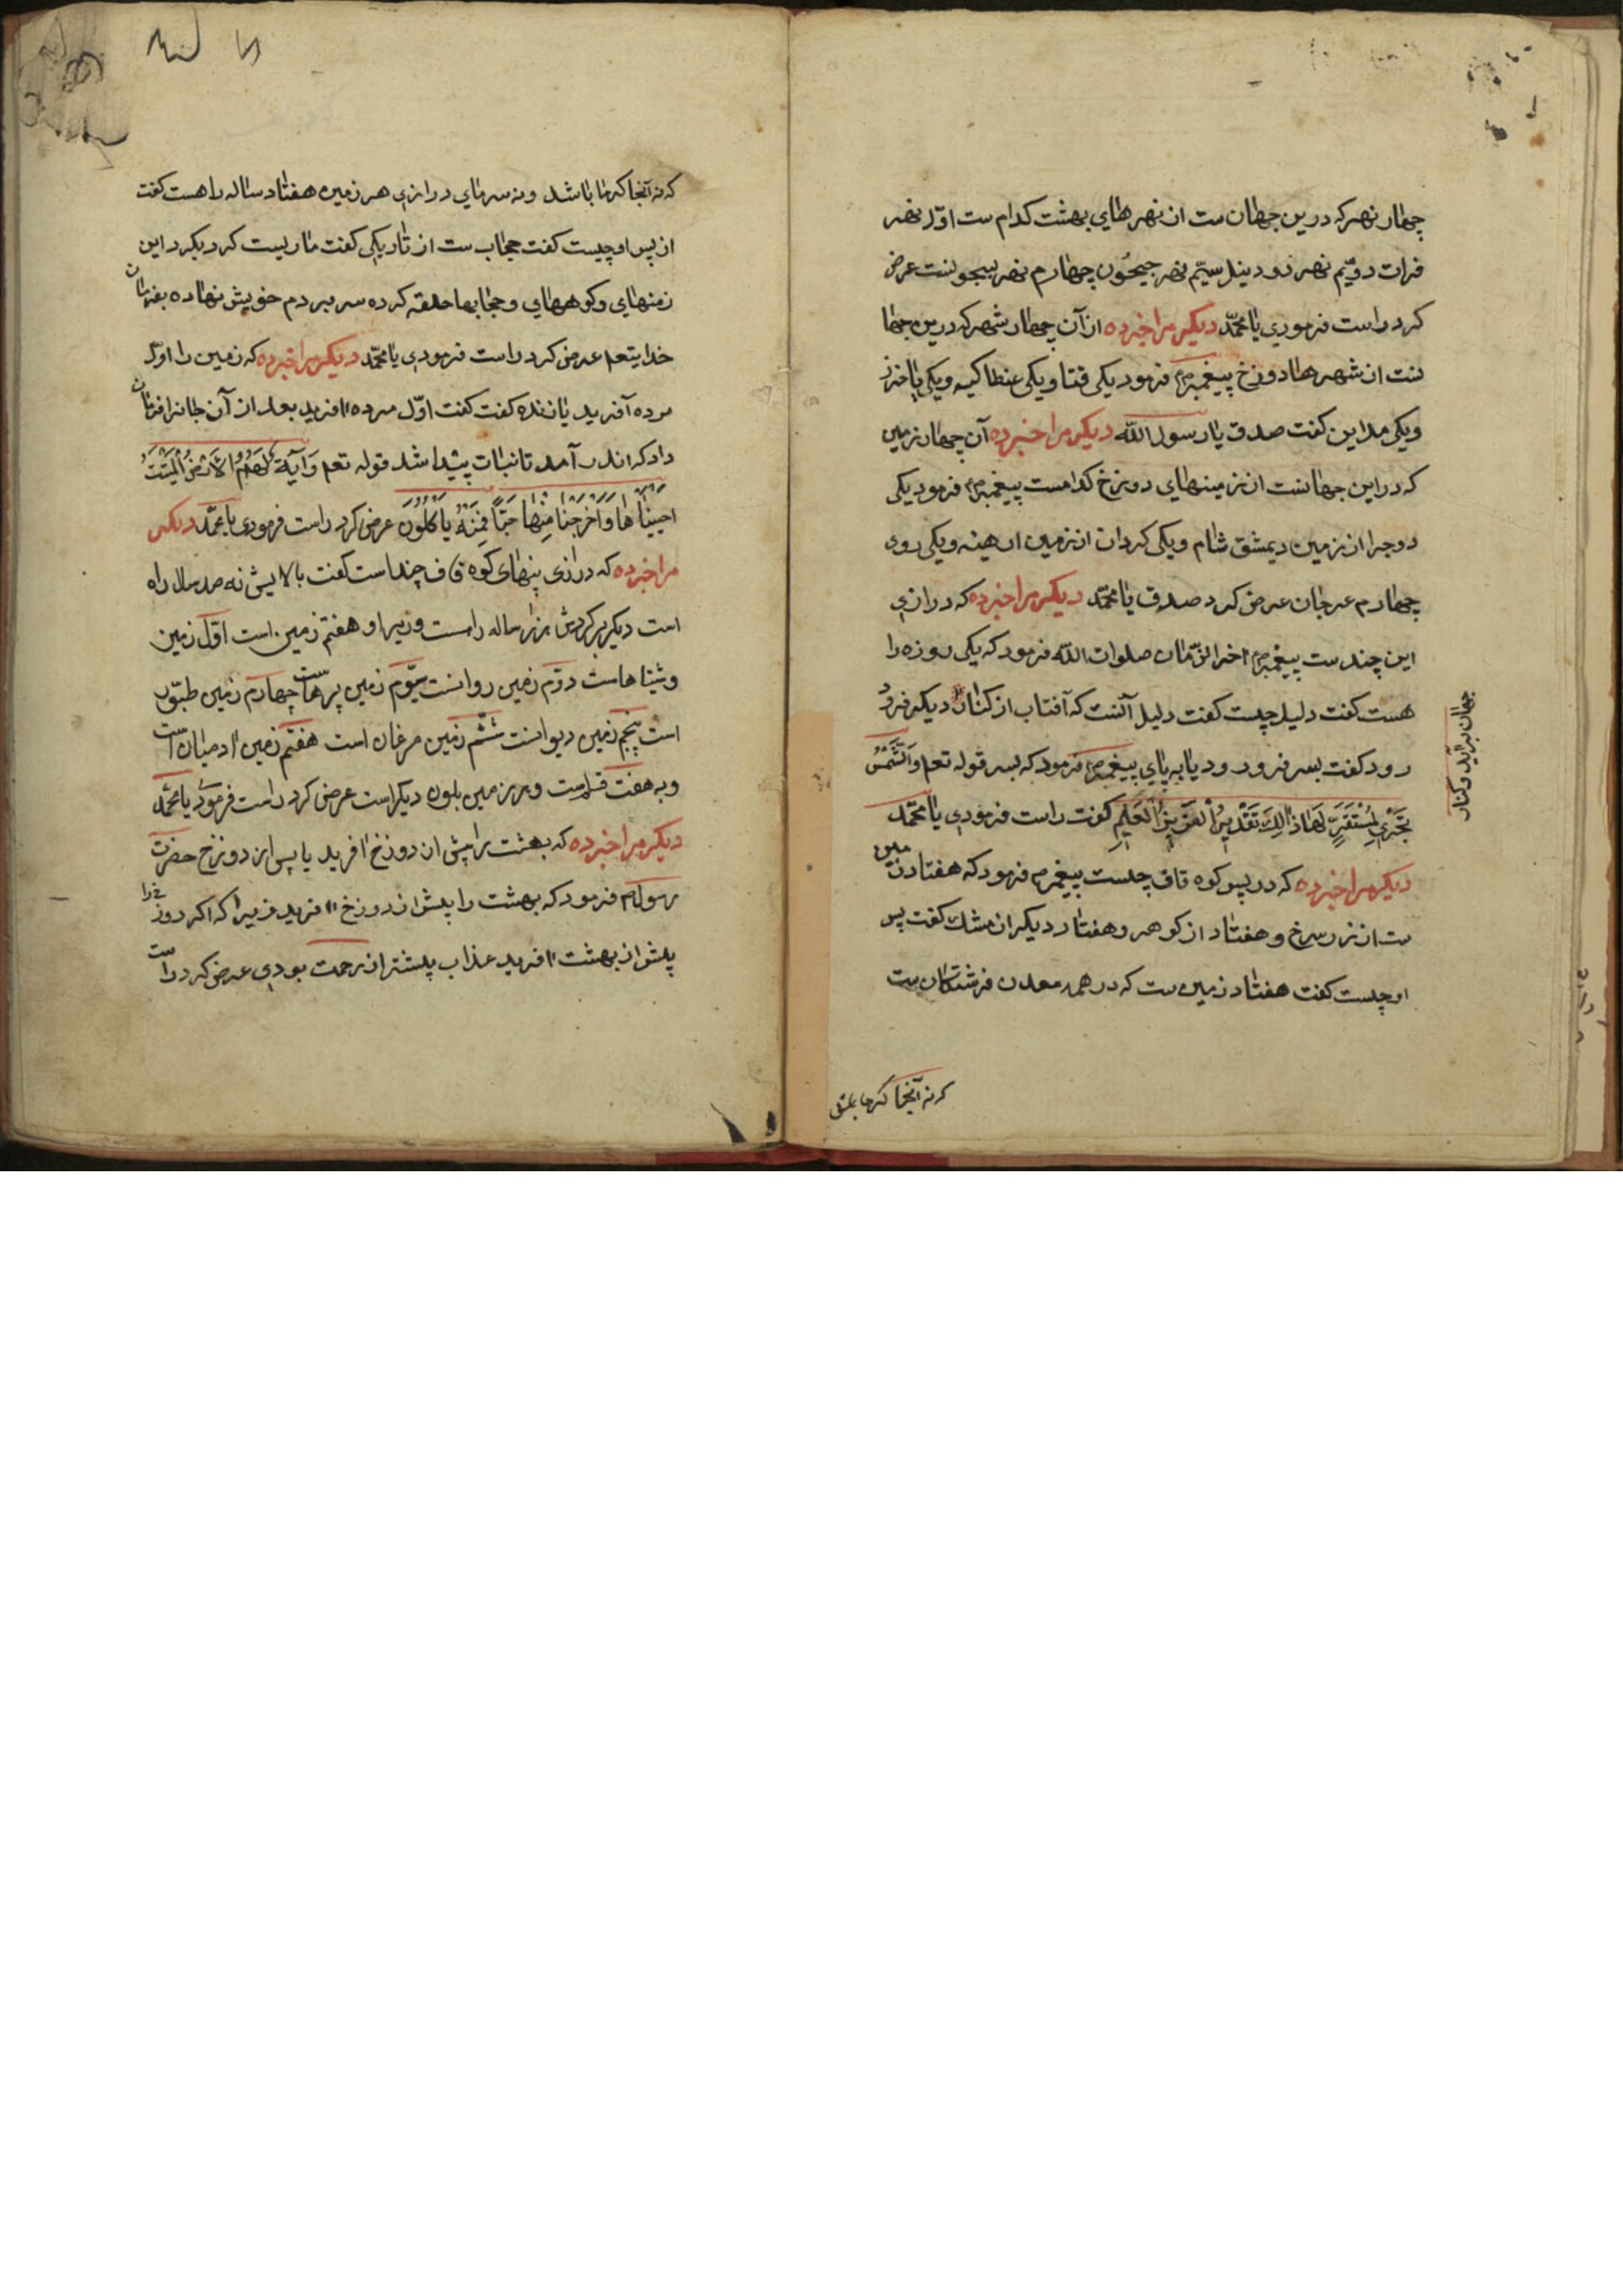 چهار نهر که درین جهان ست از نهرهای بهشت کدام ست اوّل نهر
فرات دویّم نهر رود نیل سیّم نهر جیحُون چهارم نهر سیحونست عرض
کرد راست فرمودی یا محمّد دیکر مرا خبر ده از آن چهار شهر که درین جها
نست از شهرها دوزخ پیغمبرم فرمود یکی و یکی عنطاکیه و یکی
و یکی مداین کفت صدق یا رسول الله دیکر مرا خبر ده آن چهار زمین
که دراین جهانست از زمینهای دوزخ کدامست پیغمبرم فرمود یکی
از زمین دیمشق شام و یکی کردان از زمین و یکی روی
چهارم عرجان عرض کرد صدق یا محمّد دیکر مرا خبر ده که درازی
این چند ست پیغمبرم اخرالزّمان صلوات الله فرمود که یکی روزه را
هست کفت دلیل چیست کفت دلیل آنست که آفتاب از کنار دیکر فرو
جهان برآید و کنار
رود کفت بسر فرو رود یا به پای پیغمبرم فرمود که بسر قوله تعم وَالشَّمْسُ
تَجْرِي لِمُسْتَقَرٍّ لَهَا ذَالِكَ تَقْدِيرُ الْعَزِيزُ الْعَلِيمِ کفت راست فرمودی یا محمّد
دیکر مرا خبر ده که در پس کوه قاف چیست پیغمبرم فرمود که هفتاد زمین
ست از زر سرخ و هفتاد از کوهر و هفتاد دیکر از مشک کفت پس
او چیست کفت هفتاد زمین ست که در همه معدن فرشتکان ست
که نه آنجا کرما باشد
که نه آنجا کرما باشد و نه سرمای درازی هر زمین هفتاد ساله راهست کفت
از پس او چیست کفت حجاب ست از تاریکی کفت ماریست که دیکرد این
زمنهای و کوههای و حجابها حلقه کرده سر بر دم خویش نهاده بفرمان
خدایتعم عرض کرد راست فرمودی یا محمّد دیکر مرا خبر ده که زمین را اوّل
مرده آفرید یا زنده کفت کفت اوّل مرده افرید بعد از آن جانرا فرمان
داد که اندر آمد تا نبات پیدا شد قوله تعم وَآيَةٌ لَهُمُ الْاَرْضُ الْمَيْتَتُ
احييناها وَاَخْرَجْنَا مِنْهَا حَبًّا فَمِنْهُ يَاكُلُونَ عرض کرد راست فرمودی یا محمّد دیکر
مرا خبر ده که درازی پنهای کوه قاف چند است کفت بالایش نه صد سال راه
است دیکر بر کردش هزار ساله راهست وزیر او هفتم زمین است اوّل زمین
هاست دوّم زمین سیّوم زمین پرهاست چهارم زمین طبّور
است پنجم زمین دیوانست ششّم زمین مرغان است هفتّم زمین ادمیان است
و به هفت قلمست و هر زمین بلون دیکر است عرض کرد راست فرمود یا محمّد
دیکر مرا خبر ده که بهشت را پیش از دوزخ افرید یا پس از دوزخ حضرت
رسولم فرمود که بهشت را پیش از دوزخ افرید زیرا که اکر دوزخ را
پیش از بهشت افرید عذاب پیشتر از رحمت بودی عرض کرد راست